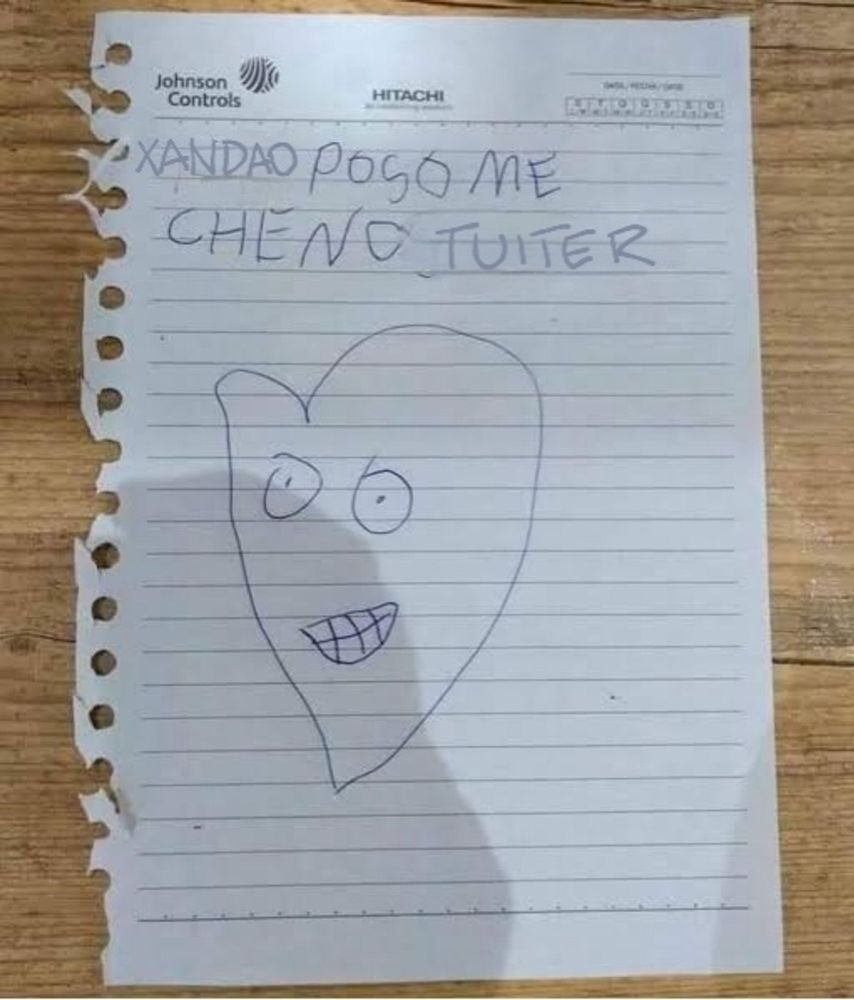 Johnson
Controls
HITACHI
DATA / FECHA / DATE
S T Q Q S S D
XANDAO POSO ME
CHENO TUITER